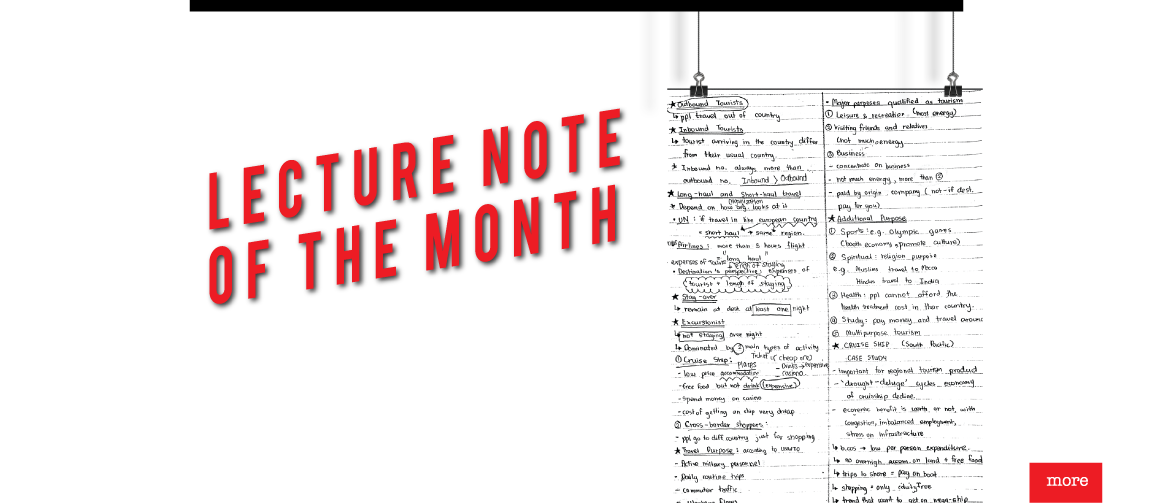 LECTURE NOTE
OF THE MONTH
★ Outbound Tourists
↳ ppl travel out of country
★ Inbound Tourists
↳ tourist arriving in the country differ
from their usual country.
* Inbound no. always more than
outbound no. Inbound > Outbound
★ Long-haul and Short-haul travel
* Depend on how org. looks at it
• UN: if travel in like european country
= short haul → same region.
Airlines: more than 5 hours flight
long haul
expenses of
length of staying
• Destination's perspective: expenses of
tourist + length of staying
★ Stay-over
↳ remain at dest at least one night
★ Excursionist
↳ not staying over night
↳ Dominated by 2 main types of activity
① Cruise Ship: Ticket (cheap one)
- Drinks → expensive
- casino
- low price accommodation
- free food but not drink (expensive)
- Spend money on casino
- cost of getting on ship very cheap
② Cross-border shoppers:
- ppl go to diff country just for shopping
★ Travel Purpose: according to
- Active military personnel
- Daily routine trips
- commuter traffic
• Major purposes qualified as tourism
① Leisure & recreation (most energy)
② Visiting friends and relatives
(not much energy)
③ Business
- concentrate on business
- not much energy, more than ②
- paid by origin company (not if dest.
pay for you)
★ Additional Purpose
① Sports: e.g. Olympic games
(boots economy & promote culture)
② Spiritual: religion purpose
e.g. Muslims travel to Mecca
Hindus travel to India
③ Health: ppl cannot afford the
health treatment cost in their country.
④ Study: pay money and travel around
⑤ Multipurpose tourism
★ CRUISE SHIP (South Pacific)
CASE STUDY
- Important for regional tourism product
- 'drought-deluge' cycles economy
of cruiseship decline.
- economic benefit is worth or not, with
congestion, imbalanced employment,
stress on infrastructure
↳ b.cos → low per person expenditure.
↳ no overnigh accom. on land + free food
↳ trips to shore = pay on boat
↳ shopping = only duty free
↳ trend that want to eat on mega-ship
more